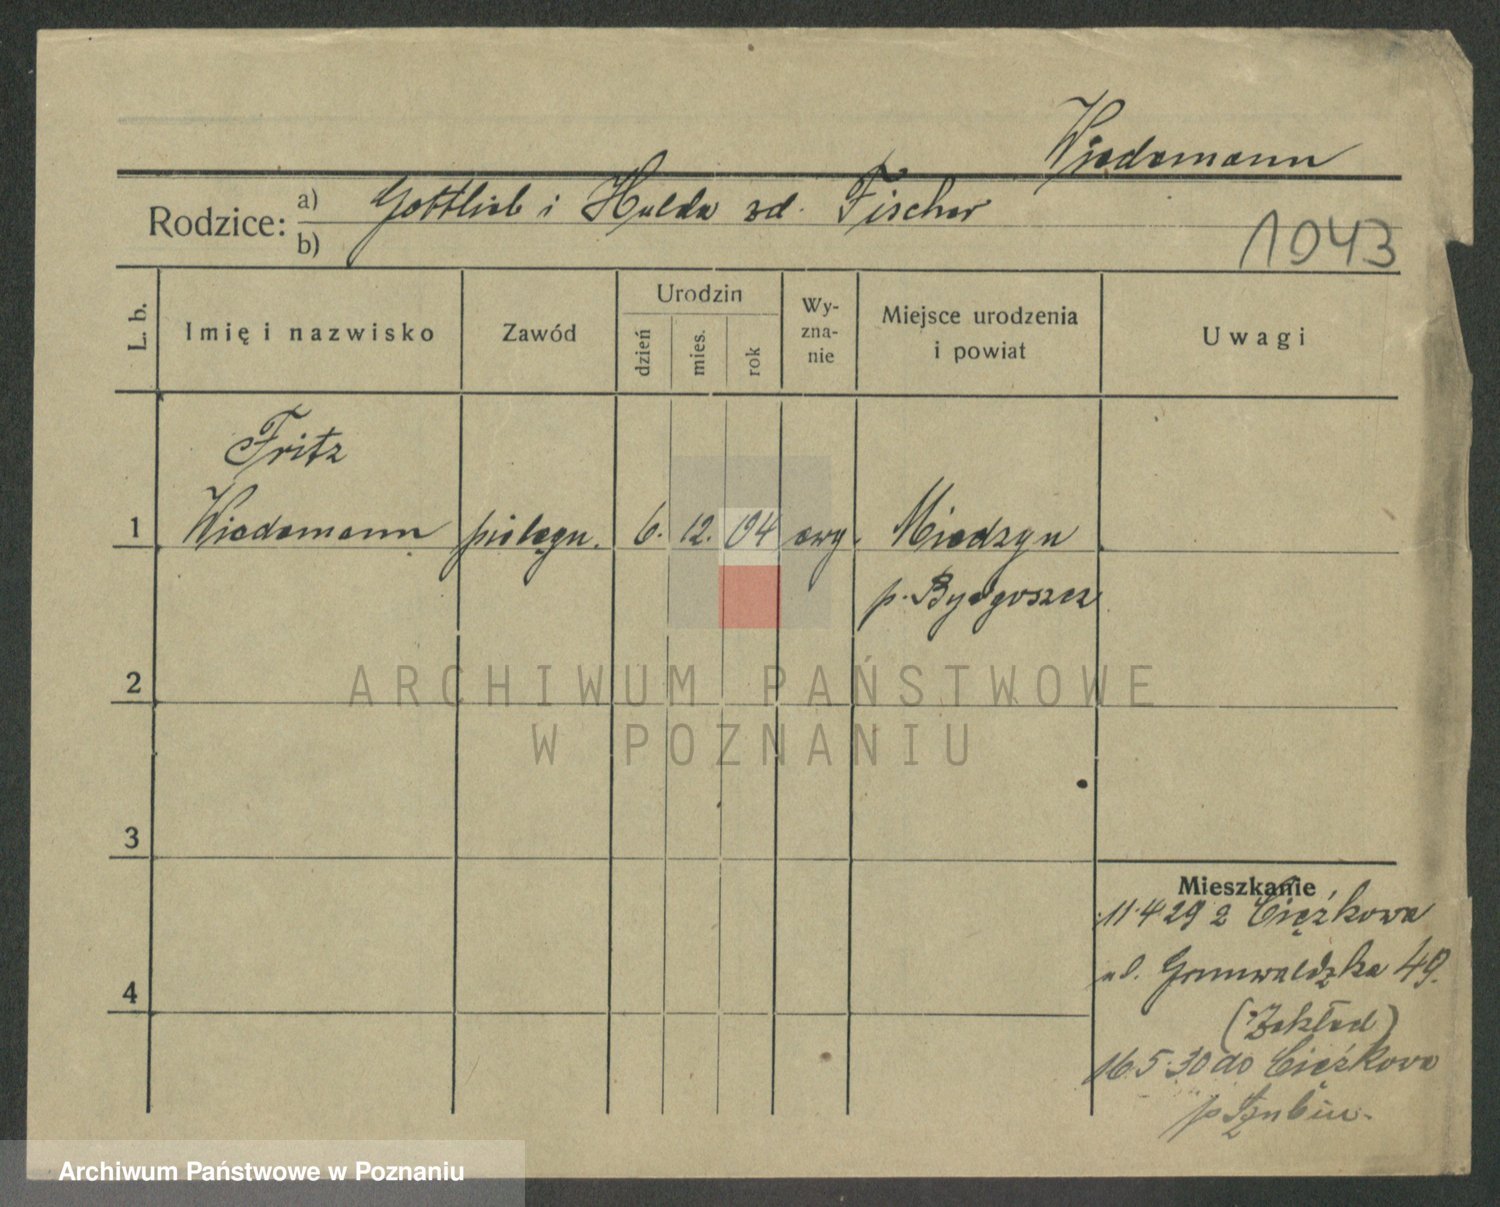 Wiedemann
Rodzice: a) Gottlieb i Hulda zd. Fischer
b)
1043
L. b.
Imię i nazwisko
Zawód
Urodzin
dzień
mies.
rok
Wy-
zna-
nie
Miejsce urodzenia
i powiat
Uwagi
Fritz
1 Wiedemann pielęgn. 6. 12. 04 ewg. Miedzyn
p. Bydgoszcz
2
ARCHIWUM PAŃSTWOWE
W POZNANIU
3
Mieszkanie
11.4.29 z Ciężkowa
ul. Grunwaldzka 49.
4
(Zakład)
16.5.30 do Ciężkowa
p Szubin.
Archiwum Państwowe w Poznaniu